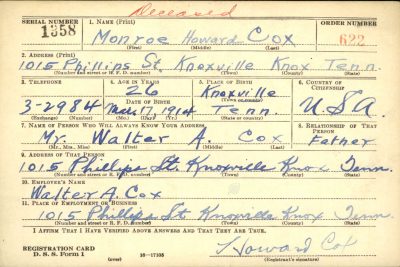 Deceased
SERIAL NUMBER 1. NAME (Print) ORDER NUMBER
1358 Monroe Howard Cox 622
(First) (Middle) (Last)
2. ADDRESS (Print)
1015 Phillips St. Knoxville Knox Tenn.
(Number and street or R. F. D. number) (Town) (County) (State)
3. TELEPHONE 4. AGE IN YEARS 5. PLACE OF BIRTH 6. COUNTRY OF CITIZENSHIP
26 Knoxville
3-2984 DATE OF BIRTH (Town or county) U.S.A.
Mar. 17 1914 Tenn.
(Exchange) (Number) (Mo.) (Day) (Yr.) (State or country)
7. NAME OF PERSON WHO WILL ALWAYS KNOW YOUR ADDRESS 8. RELATIONSHIP OF THAT PERSON
Mr. Walter A. Cox Father
(Mr., Mrs., Miss) (First) (Middle) (Last)
9. ADDRESS OF THAT PERSON
1015 Phillips St. Knoxville Knox Tenn.
(Number and street or R. F. D. number) (Town) (County) (State)
10. EMPLOYER'S NAME
Walter A. Cox
11. PLACE OF EMPLOYMENT OR BUSINESS
1015 Phillips St. Knoxville Knox Tenn.
(Number and street or R. F. D. number) (Town) (County) (State)
I AFFIRM THAT I HAVE VERIFIED ABOVE ANSWERS AND THAT THEY ARE TRUE.
REGISTRATION CARD Howard Cox
D. S. S. FORM 1 (over) 16-17105